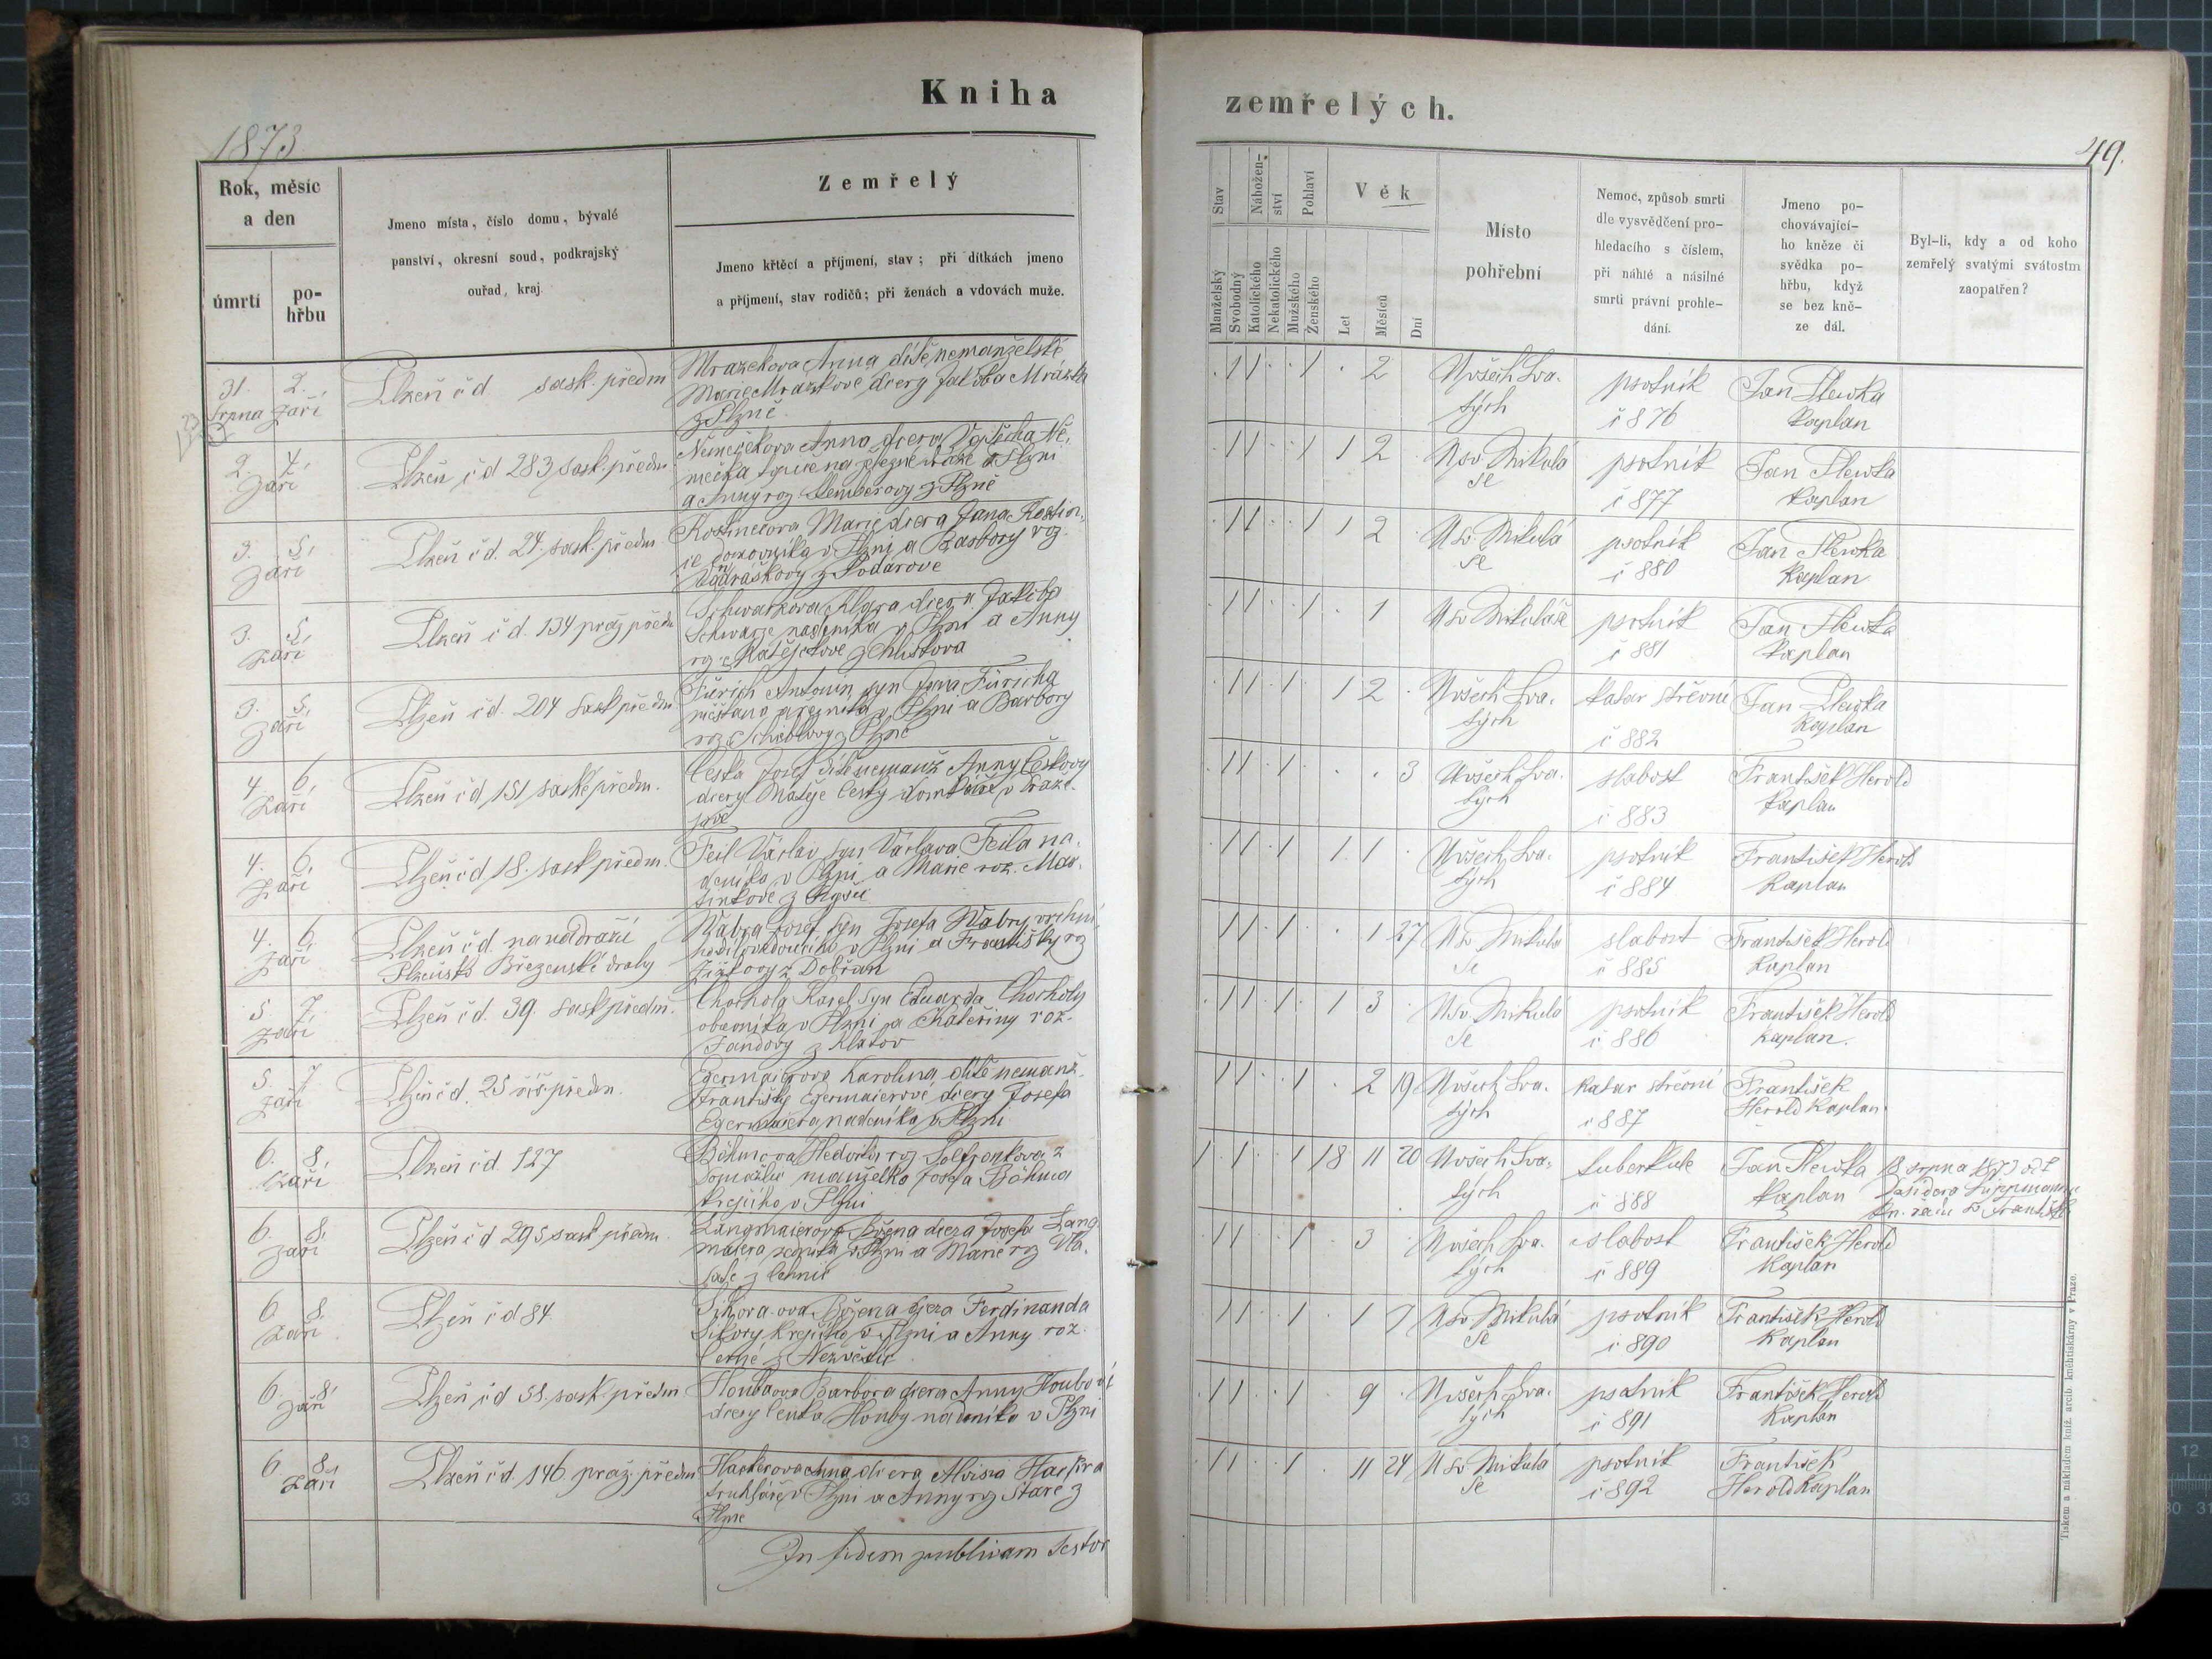 Kniha
zemřelých.
1873
49.
Rok, měsíc
a den
úmrtí
po-
hřbu
Jmeno místa, číslo domu, bývalé
panství, okresní soud, podkrajský
ouřad, kraj.
Zemřelý
Jmeno křtěcí a příjmení, stav; při dítkách jmeno
a příjmení, stav rodičů; při ženách a vdovách muže.
Stav
Nábožen-
ství
Pohlaví
Věk
Manželský
Svobodný
Katolického
Nekatolického
Mužského
Ženského
Let
Měsíců
Dní
Místo
pohřební
Nemoc, způsob smrti
dle vysvědčení pro-
hledacího s číslem,
při náhlé a násilné
smrti právní prohle-
dání.
Jmeno po-
chovávající-
ho kněze či
svědka po-
hřbu, když
se bez kně-
ze dál.
Byl-li, kdy a od koho
zemřelý svatými svátostm
zaopatřen?
31. 2.
Srpna Září
Plzeň čd sask. předm
Mrazekova Anna dítě nemanželské
Marie Mrazkové dcery Jakóba Mrázka
z Plzně.
1 1 1 2
U všech Sva-
tých
psotník
č 876
Jan Slewka
Kaplan
2. 4.
Září
Plzeň čd 283 sask. předm
Němečkova Anna dcera Vojtěcha Ně-
mečka na železné dráze v Plzni
a Anny roz z Plzně
1 1 1 1 2
U sv. Mikulá
še
psotník
č 877
Jan Slewka
Kaplan
3. 5.
Září
Plzeň čd. 24. sask. předm
Marie dcera Jana
domovníka v Plzni a Barbory roz.
1 1 1 1 2
U sv. Mikulá
še
psotník
č 880
Jan Slewka
Kaplan
3. 5.
Září
Plzeň čd. 134 praž předm
Schwarzova Klara dcera Jakuba
Schwarze nadeníka v Plzni a Anny
roz. Matějckove z Chustova
1 1 1 1
U sv Mikuláše
psotník
č 881
Jan Slewka
Kaplan
3. 5.
Září
Plzeň čd. 204 Sask předm
Fürich Antonín syn Jana Füricha
měšťana v Plzni a Barbory
roz z Plzně
1 1 1 1 2
U všech Sva-
tých
katar střevní
č 882
Jan Slewka
Kaplan
4. 6.
Září
Plzeň čd 151 saské předm.
Česka Josef dítě nemanž Anny Českovy
dcery Matěje Česky domkáře v
1 1 1 3
U všech Sva-
tých
slabost
č 883
František Herold
Kaplan
4. 6.
Září
Plzeň čd 18. sask předm.
Feil Václav syn Václava Feila na-
deníka v Plzni a Marie roz. Mar-
tinkové z
1 1 1 1 1
U všech Sva-
tých
psotník
č 884
František Herold
Kaplan
4. 6
Září
Plzeň čd. na nádraží
Plzeňsko Březenské drahy
Wabra Josef syn Josefa Wabry vrchní
v Plzni a Františky roz
z Dobřan
1 1 1 1 27
U sv. Mikulá
še
slabost
č 885
František Herold
Kaplan
5 7.
Září
Plzeň čd. 39. sask předm.
Chochola Karel syn Eduarda Chocholy
obuvníka v Plzni a Kateřiny roz.
Jandovy z Klatov
1 1 1 1 3
U sv. Mikulá
še
psotník
č 886
František Herold
Kaplan.
5. 7
Září
Plzeň čd. 25 říš předm.
Egermaierova Karolina dítě nemanž.
Františky Egermaierové dcery Josefa
Egermaiera nadeníka v Plzni
1 1 1 2 19
U všech Sva-
tých
katar střevní
č 887
František
Herold Kaplan.
6. 8.
Září
Plzeň čd. 127
Böhmova Hedvika roz z
Domažlic manželka Josefa Böhma
krejčího v Plzni
1 1 1 18 11 20
U všech Sva-
tých
tuberkule
č 888
Jan Slewka
Kaplan
18 srpna 1873 od P.
Isidora Lippmanna
kn. řádu sv Františk
6. 8.
Září
Plzeň čd 295 sask předm.
Langmaierova Božena dcera Josefa Lang
maiera v Plzni a Marie roz Vla-
1 1 1 3
U všech Sva-
tých
slabost
č 889
František Herold
Kaplan
6. 8.
Září
Plzeň čd 84.
Sikora-ova Božena dcera Ferdinanda
Sikory krejčího v Plzni a Anny roz.
Černé z Nezvěstic
1 1 1 1 7
U sv. Mikulá
še
psotník
č 890
František Herold
Kaplan
6. 8.
Září
Plzeň čd 58 sask. předm.
Houbaova Barbora dcera Anny Houbové
dcery Čenka Houby nadeníka v Plzni
1 1 1 9
U všech Sva-
tých
psotník
č 891
František Herold
Kaplan
6 8.
Září
Plzeň čd. 146. praž. předm
Anna dcera Aloisia
truhláře v Plzni a Anny roz Staré z
Plzně
1 1 1 11 24
U sv Mikulá
še
psotník
č 892
František
Herold Kaplan
In fidem publicam testor
Tiskem a nákladem kníž. arcib. kněhtiskárny v Praze.